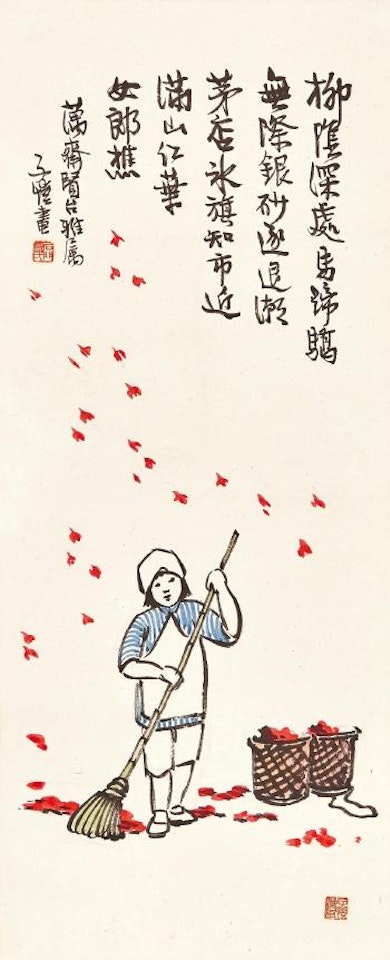 柳陰深處馬蹄驕
無際銀砂逐退潮
茅店冰旗知市近
滿山紅葉
女郎樵
齋賢台雅屬
子愷畫